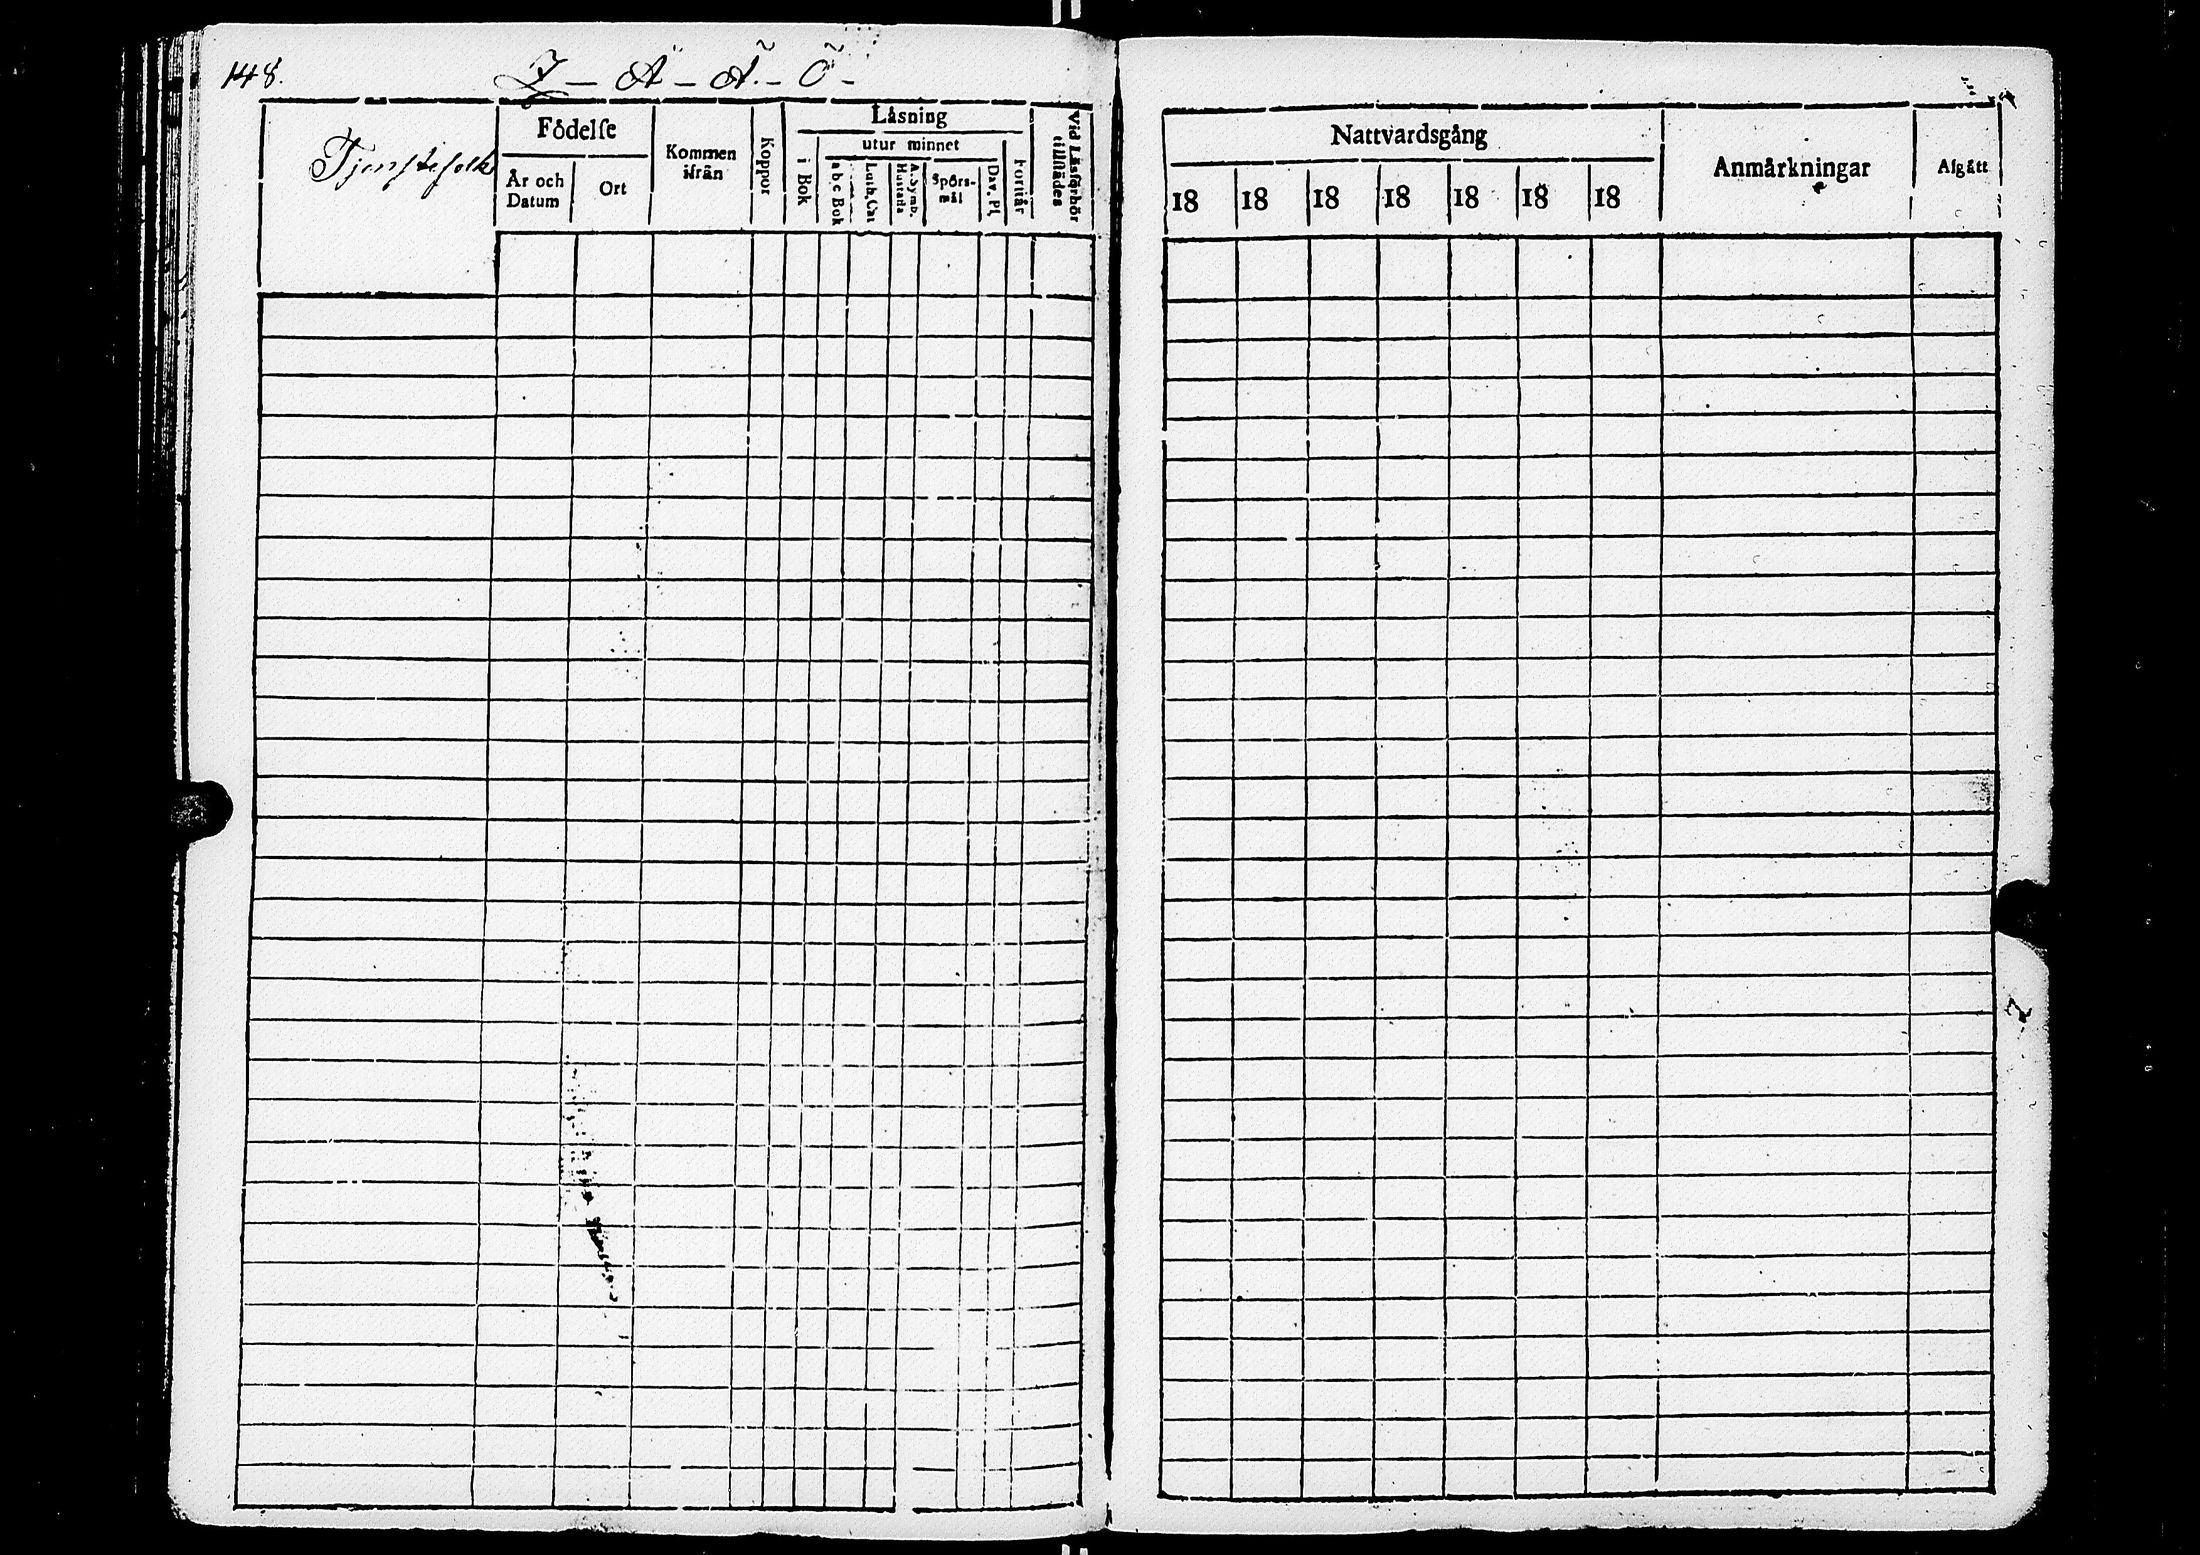 148.
Z – Å – Ä. – Ö –
Tjenstefolk
Födelse
År och
Datum
Ort
Kommen
ifrån
Koppor
Låsning
i Bok
utur minnet
a b c Bok
Luth. Cat
A. Symb.
Hustafla
Spörs-
mål
Dav. Ps
Förstår
Vid Läsförhör
tillstädes
Nattvardsgång
18 18 18 18 18 18 18
Anmärkningar
Afgått